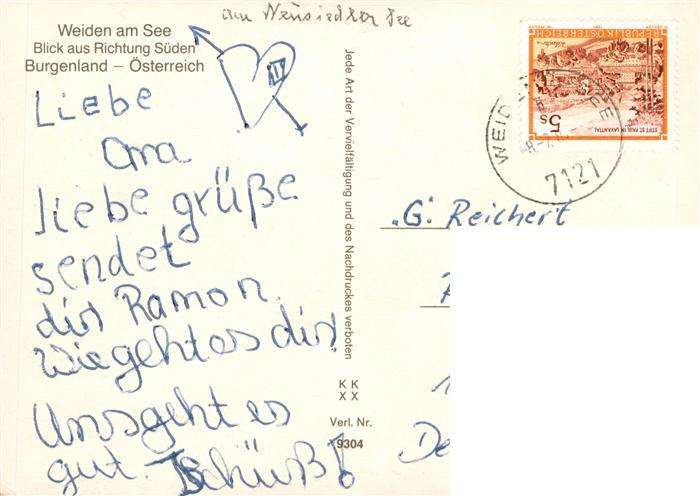 am Neusiedler See
Weiden am See
Blick aus Richtung Süden
Burgenland – Österreich
Liebe
Oma
liebe grüße
sendet
dir Ramon.
Wie geht es dir?
Uns geht es
gut. Tschüß!
Jede Art der Vervielfältigung und des Nachdruckes verboten
K K
X X
Verl. Nr.
9304
REPUBLIK ÖSTERREICH
5 S
STIFT ST. PAUL IM LAVANTTAL
WEIDEN
SEE
7121
„G." Reichert
De